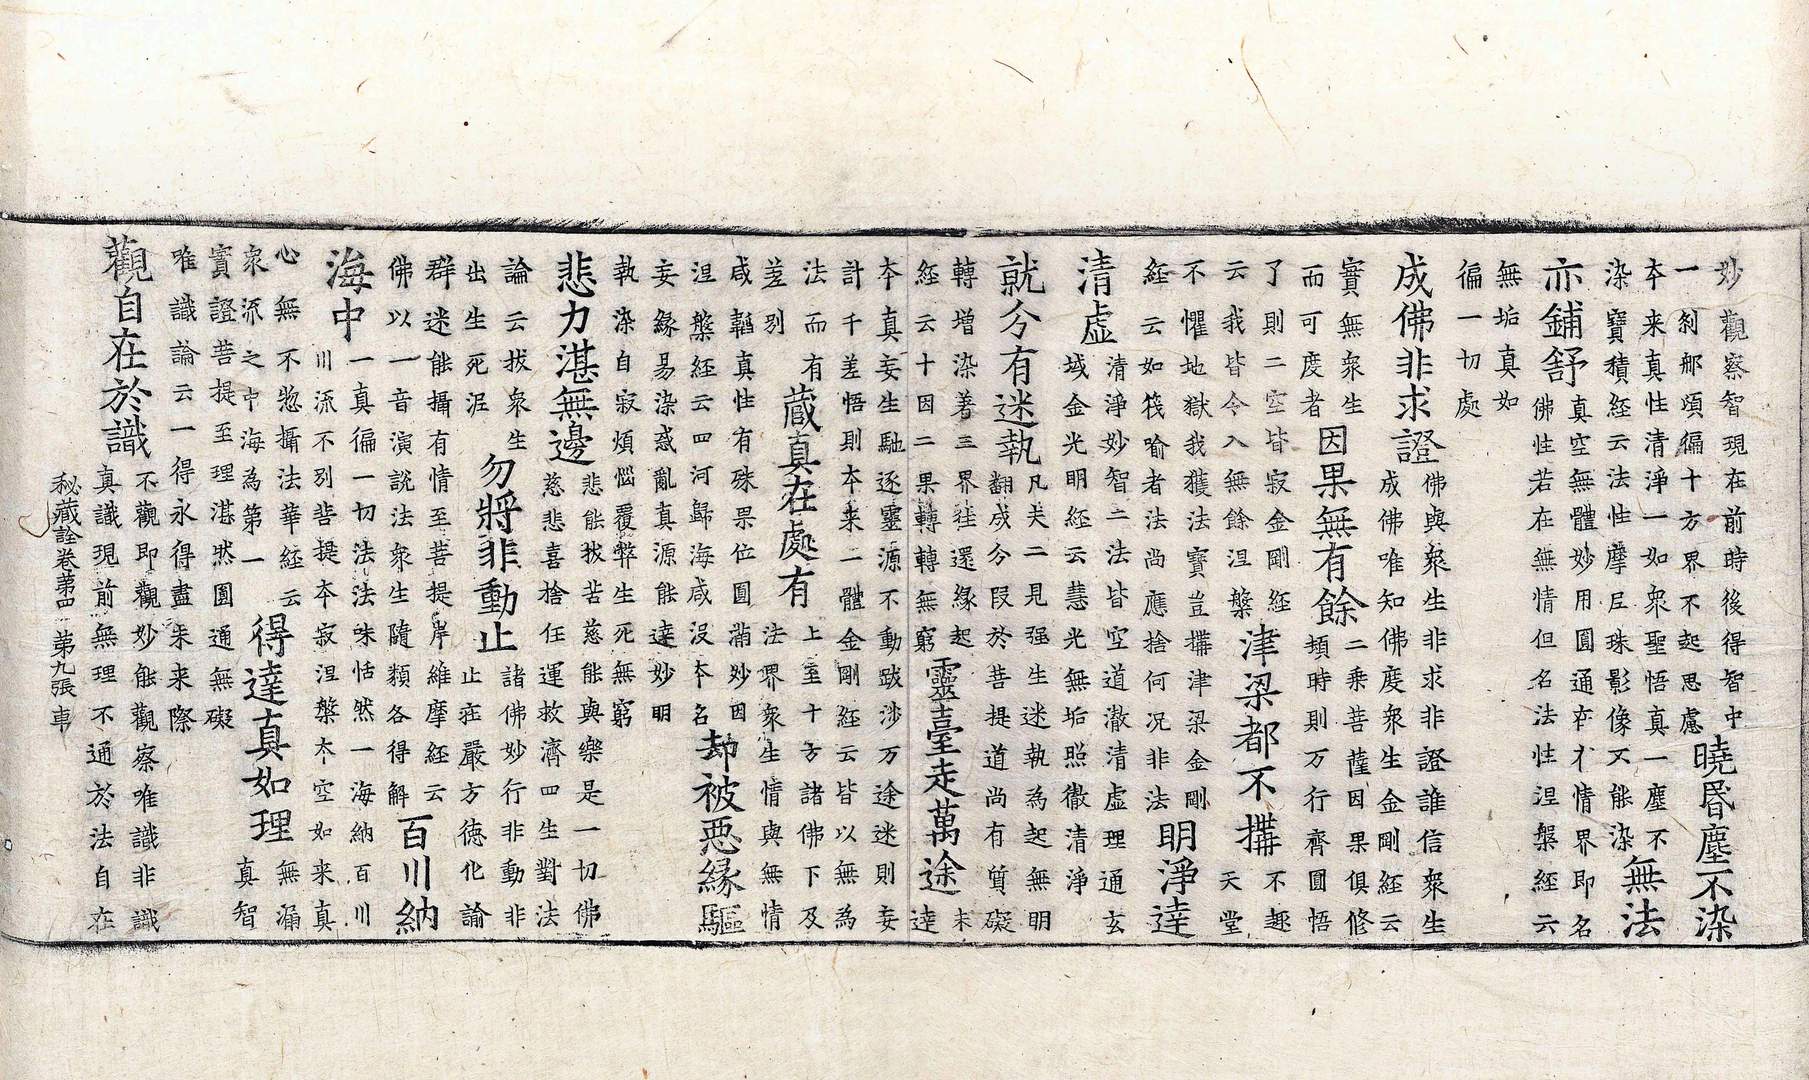 妙觀察智現在前時後得智中一刹那頃徧十方界不起思慮曉昏塵不染
夲来真性清淨一如衆聖悟真一塵不染寶積經云法性摩尼珠影像不能染無法
亦鋪舒真空無體妙用圓通在情界即名佛性若在無情但名法性涅槃經云
無垢真如徧一切處
成佛非求證佛與衆生非求非證誰信衆生成佛唯知佛度衆生金剛經云
實無衆生而可度者因果無有餘二乘菩薩因果俱修頓時則万行齊圓悟
了則二空皆寂金剛經云我皆令入無餘涅槃津梁都不搆不趣天堂
不懼地獄我獲法寶豈搆津梁金剛經云如筏喻者法尚應捨何況非法明淨達
清虛清淨妙智二法皆空道澈清虛理通玄域金光明經云慧光無垢照徹清淨
就今有迷執凡夫二見强生迷執為起無明翻成今段於菩提道尚有質礙
轉增染著三界往還緣起經云十因二果轉轉無窮靈臺走萬途未達
夲真妄生馳逐靈源不動跋涉万途迷則妄計千差悟則夲来一體金剛經云皆以無為
法而有差别藏真在處有上至十方諸佛下及法界衆生情與無情
咸韜真性有殊果位圓滿妙因涅槃經云四河歸海咸沒夲名却被惡緣驅
妄緣易染惑亂真源能達妙明執染自寂煩惱覆弊生死無窮
悲力湛無邊悲能拔苦慈能與樂是一切佛慈悲喜捨任運救濟四生對法
論云拔衆生出生死泥勿將非動止諸佛妙行非動非止莊嚴方徳化論
群迷能攝有情至菩提岸維摩經云佛以一音演說法衆生隨類各得解百川納
海中一真徧一切法法味恬然一海納百川川流不別菩提夲寂涅槃夲空如来真
心無不惣攝法華經云衆流之中海為第一得達真如理無漏真智
實證菩提至理湛然圓通無礙唯識論云一得永得盡未来際
觀自在於識不觀即觀妙能觀察唯識非識真識現前無理不通於法自在
秘藏詮卷第四 第九張 車